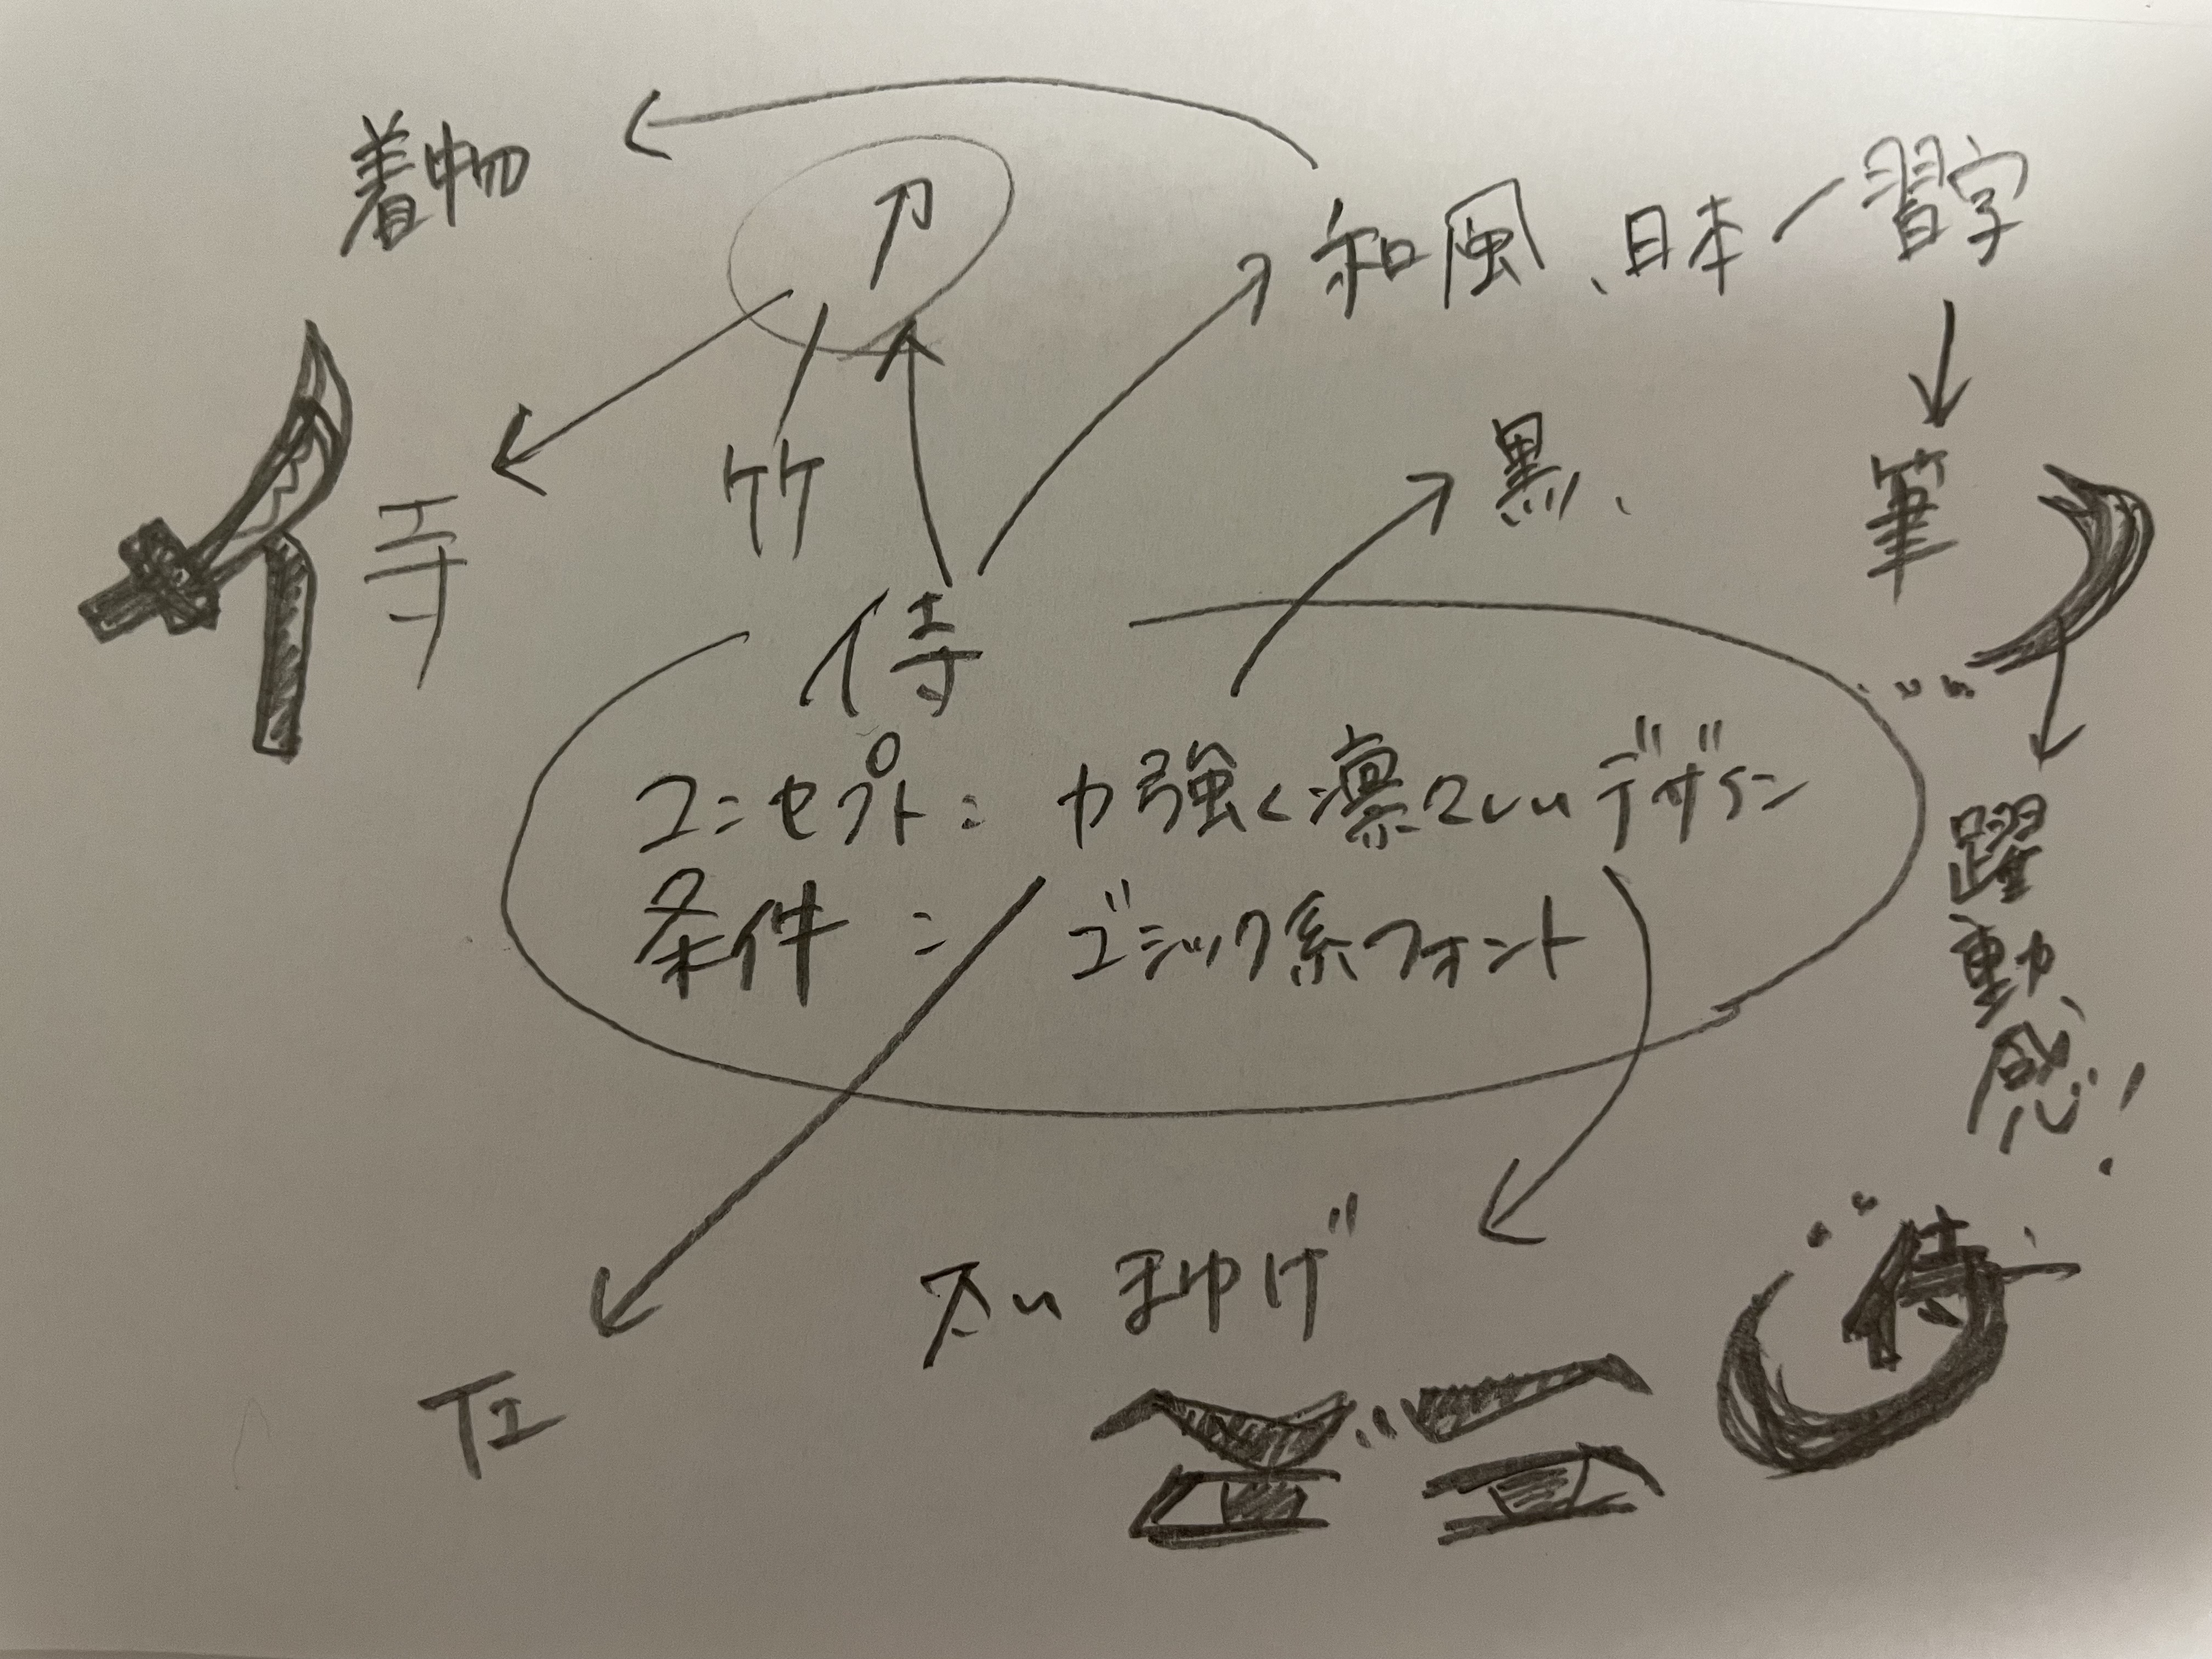 着物
刀
和風、日本
習字
竹
黒、
筆
寺
侍
コンセプト: 力強く凛々しいデザイン
条件: ゴシック系フォント
躍動感!
太いまゆげ
侍